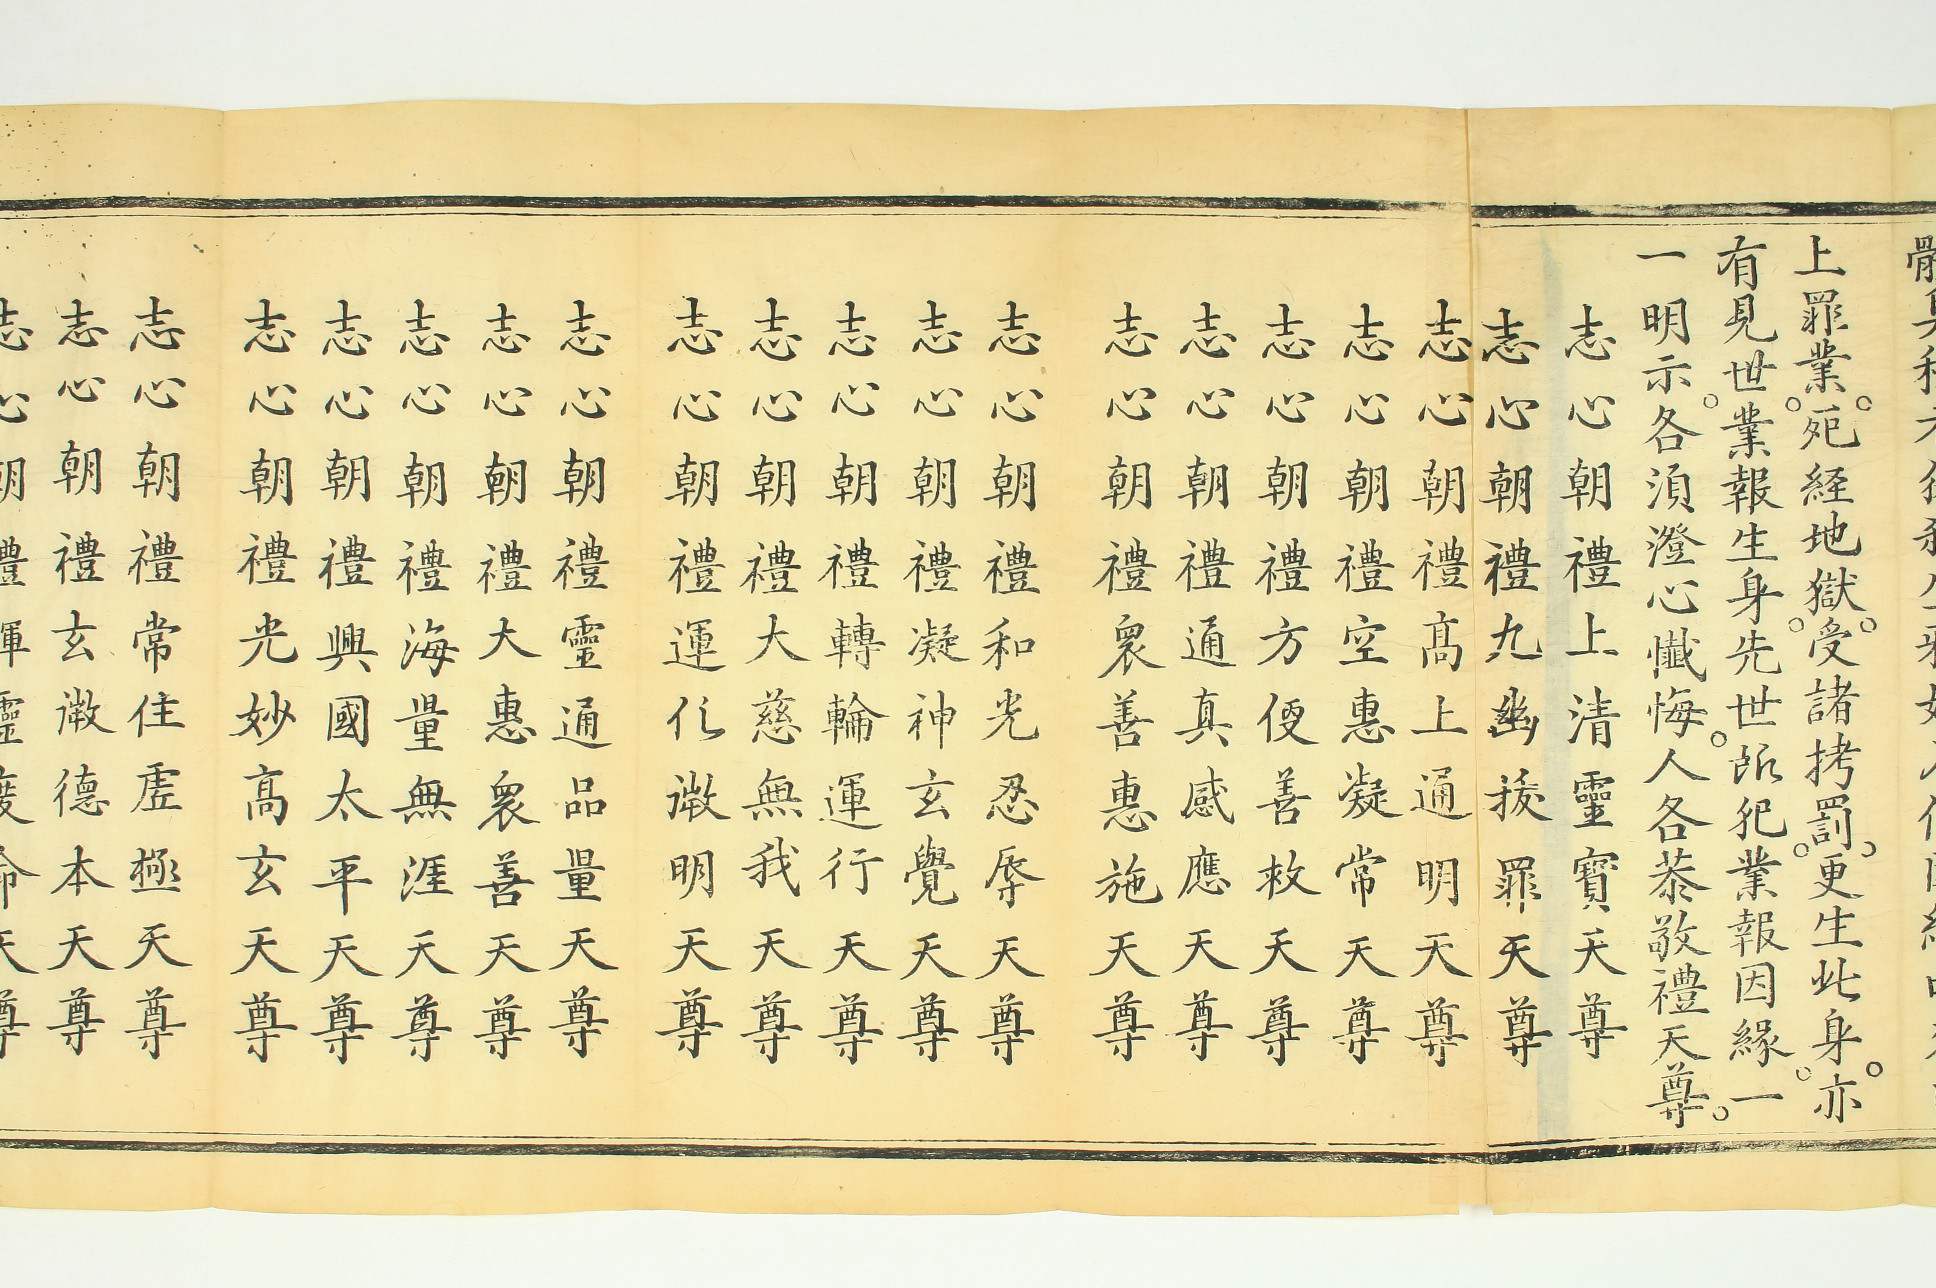 上罪業。死経地獄。受諸拷罰。更生此身。亦
有見世業報生身先世所犯業報因緣一
一明示各須澄心懺悔。人各恭敬禮天尊。
志心朝禮上清靈寶天尊
志心朝禮九幽拔罪天尊
志心朝禮高上通明天尊
志心朝禮空惠凝常天尊
志心朝禮方便善救天尊
志心朝禮通真感應天尊
志心朝禮衆善惠施天尊
志心朝禮和光忍辱天尊
志心朝禮凝神玄覺天尊
志心朝禮轉輪運行天尊
志心朝禮大慈無我天尊
志心朝禮運化微明天尊
志心朝禮靈通品量天尊
志心朝禮大惠衆善天尊
志心朝禮海量無涯天尊
志心朝禮興國太平天尊
志心朝禮光妙高玄天尊
志心朝禮常住虛極天尊
志心朝禮玄微德本天尊
志心朝禮 靈度命天尊